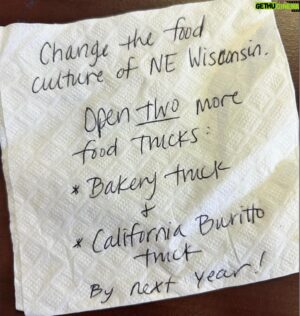 Change the food
culture of NE Wisconsin.
Open two more
food trucks:
* Bakery truck
&
* California Buritto
truck
By next year!